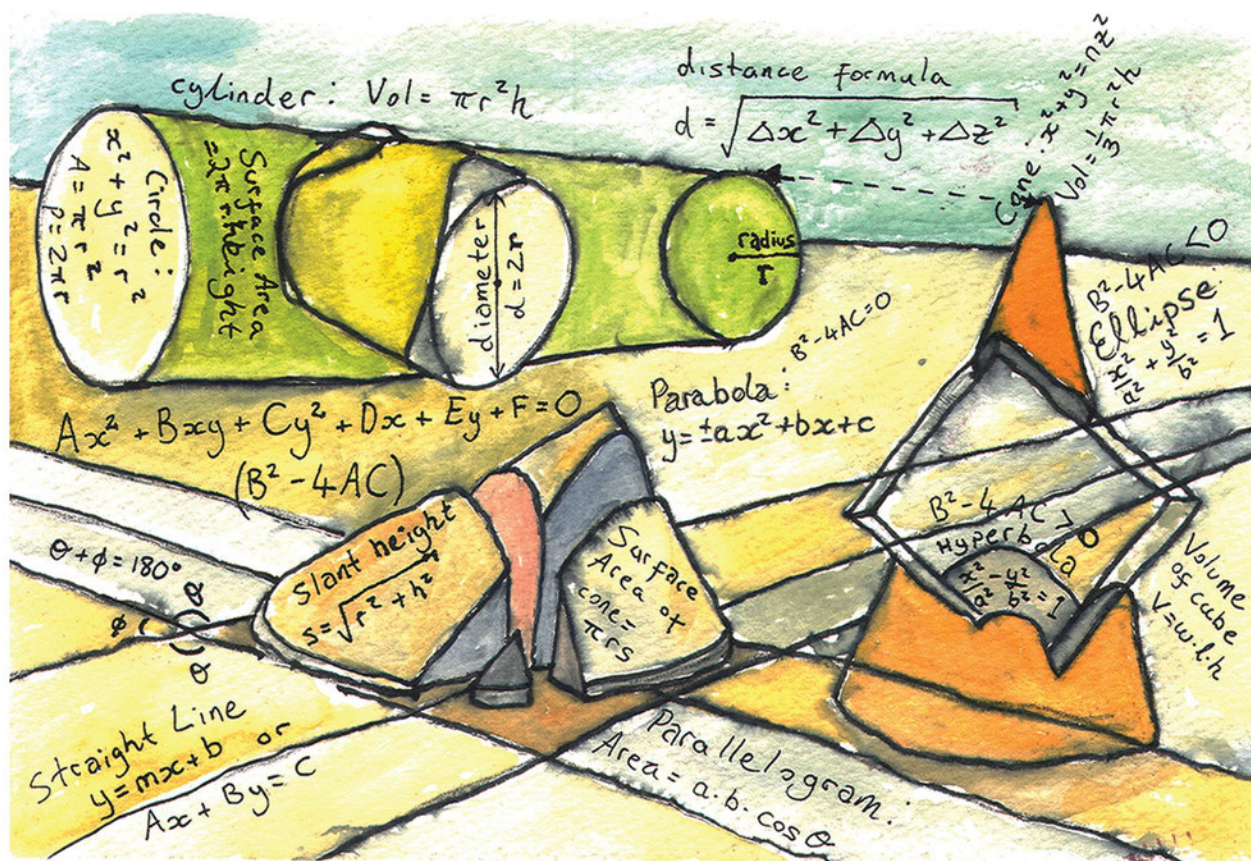 cylinder: Vol = πr²h
distance formula
d = √Δx² + Δy² + Δz²
Cone: x² + y² = nz²
Vol = ⅓πr²h
Circle:
x² + y² = r²
A = πr²
P = 2πr
Surface Area
= 2πr.height
diameter
d = 2r
radius
r
B² - 4AC < 0
Ellipse:
x²/a² + y²/b² = 1
B² - 4AC = 0
Parabola:
y = ±ax² + bx + c
Ax² + Bxy + Cy² + Dx + Ey + F = 0
(B² - 4AC)
Slant height
s = √r² + h²
Surface
Area of
cone =
πrs
B² - 4AC > 0
Hyperbola
x²/a² - y²/b² = 1
Volume
of cube
V = w.l.h
θ + ϕ = 180°
θ
ϕ
θ
Straight Line
y = mx + b or
Ax + By = C
Parallelogram:
Area = a.b.cos θ